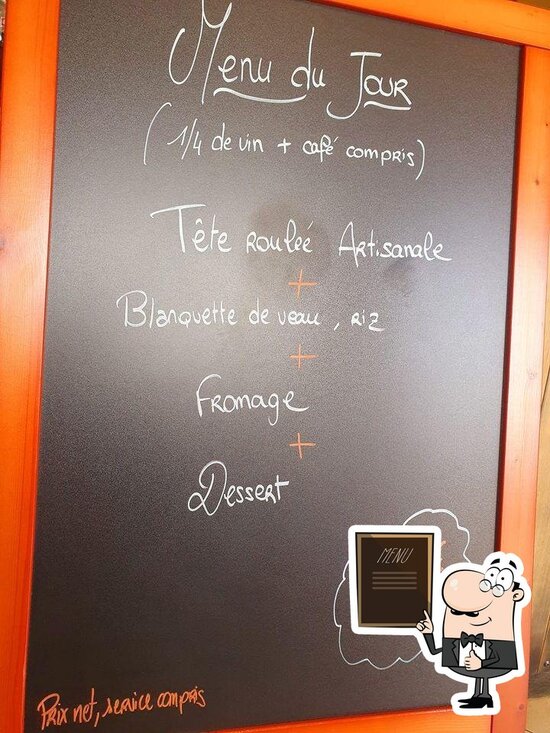 Menu du Jour
(1/4 de vin + café compris)
Tête rouleé Artisanale
+
Blanquette de veau, riz
+
Fromage
+
Dessert
MENU
Prix net, service compris